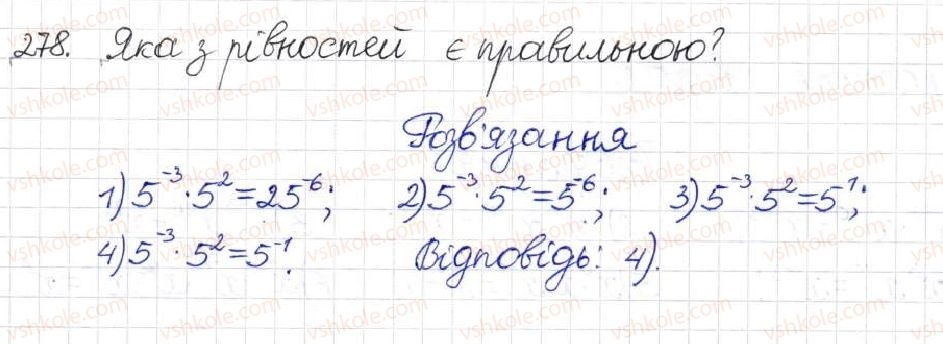 278. Яка з рівностей є правильною?
Розв'язання
1) 5⁻³·5²=25⁻⁶; 2) 5⁻³·5²=5⁻⁶; 3) 5⁻³·5²=5¹;
4) 5⁻³·5²=5⁻¹. Відповідь: 4).